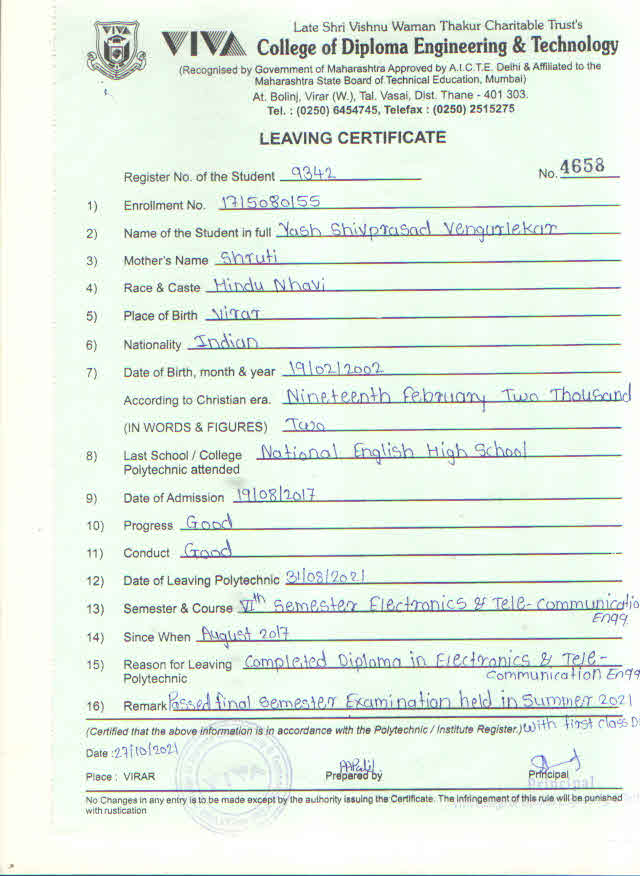 Late Shri Vishnu Waman Thakur Charitable Trust's
VIVA College of Diploma Engineering & Technology
(Recognised by Government of Maharashtra Approved by A.I.C.T.E. Delhi & Affiliated to the
Maharashtra State Board of Technical Education, Mumbai)
At. Bolinj, Virar (W.), Tal. Vasai, Dist. Thane - 401 303.
Tel. : (0250) 6454745, Telefax : (0250) 2515275
LEAVING CERTIFICATE
Register No. of the Student 9342 No. 4658
1) Enrollment No. 1715080155
2) Name of the Student in full Yash Shivprasad Vengurlekar
3) Mother's Name Shruti
4) Race & Caste Hindu Nhavi
5) Place of Birth Virar
6) Nationality Indian
7) Date of Birth, month & year 19/02/2002
According to Christian era. Nineteenth February Two Thousand
(IN WORDS & FIGURES) Two
8) Last School / College National English High School
Polytechnic attended
9) Date of Admission 19/08/2017
10) Progress Good
11) Conduct Good
12) Date of Leaving Polytechnic 31/08/2021
13) Semester & Course VIth Semester Electronics & Tele-communicatio
Engg.
14) Since When August 2017
15) Reason for Leaving Completed Diploma in Electronics & Tele-
Polytechnic Communication Engg
16) Remark Passed final Semester Examination held in Summer 2021
(Certified that the above information is in accordance with the Polytechnic / Institute Register.) with first class Di
Date : 27/10/2021
Place : VIRAR Prepared by Principal
Principal
VIVA
No Changes in any entry is to be made except by the authority issuing the Certificate. The infringement of this rule will be punished
with rustication